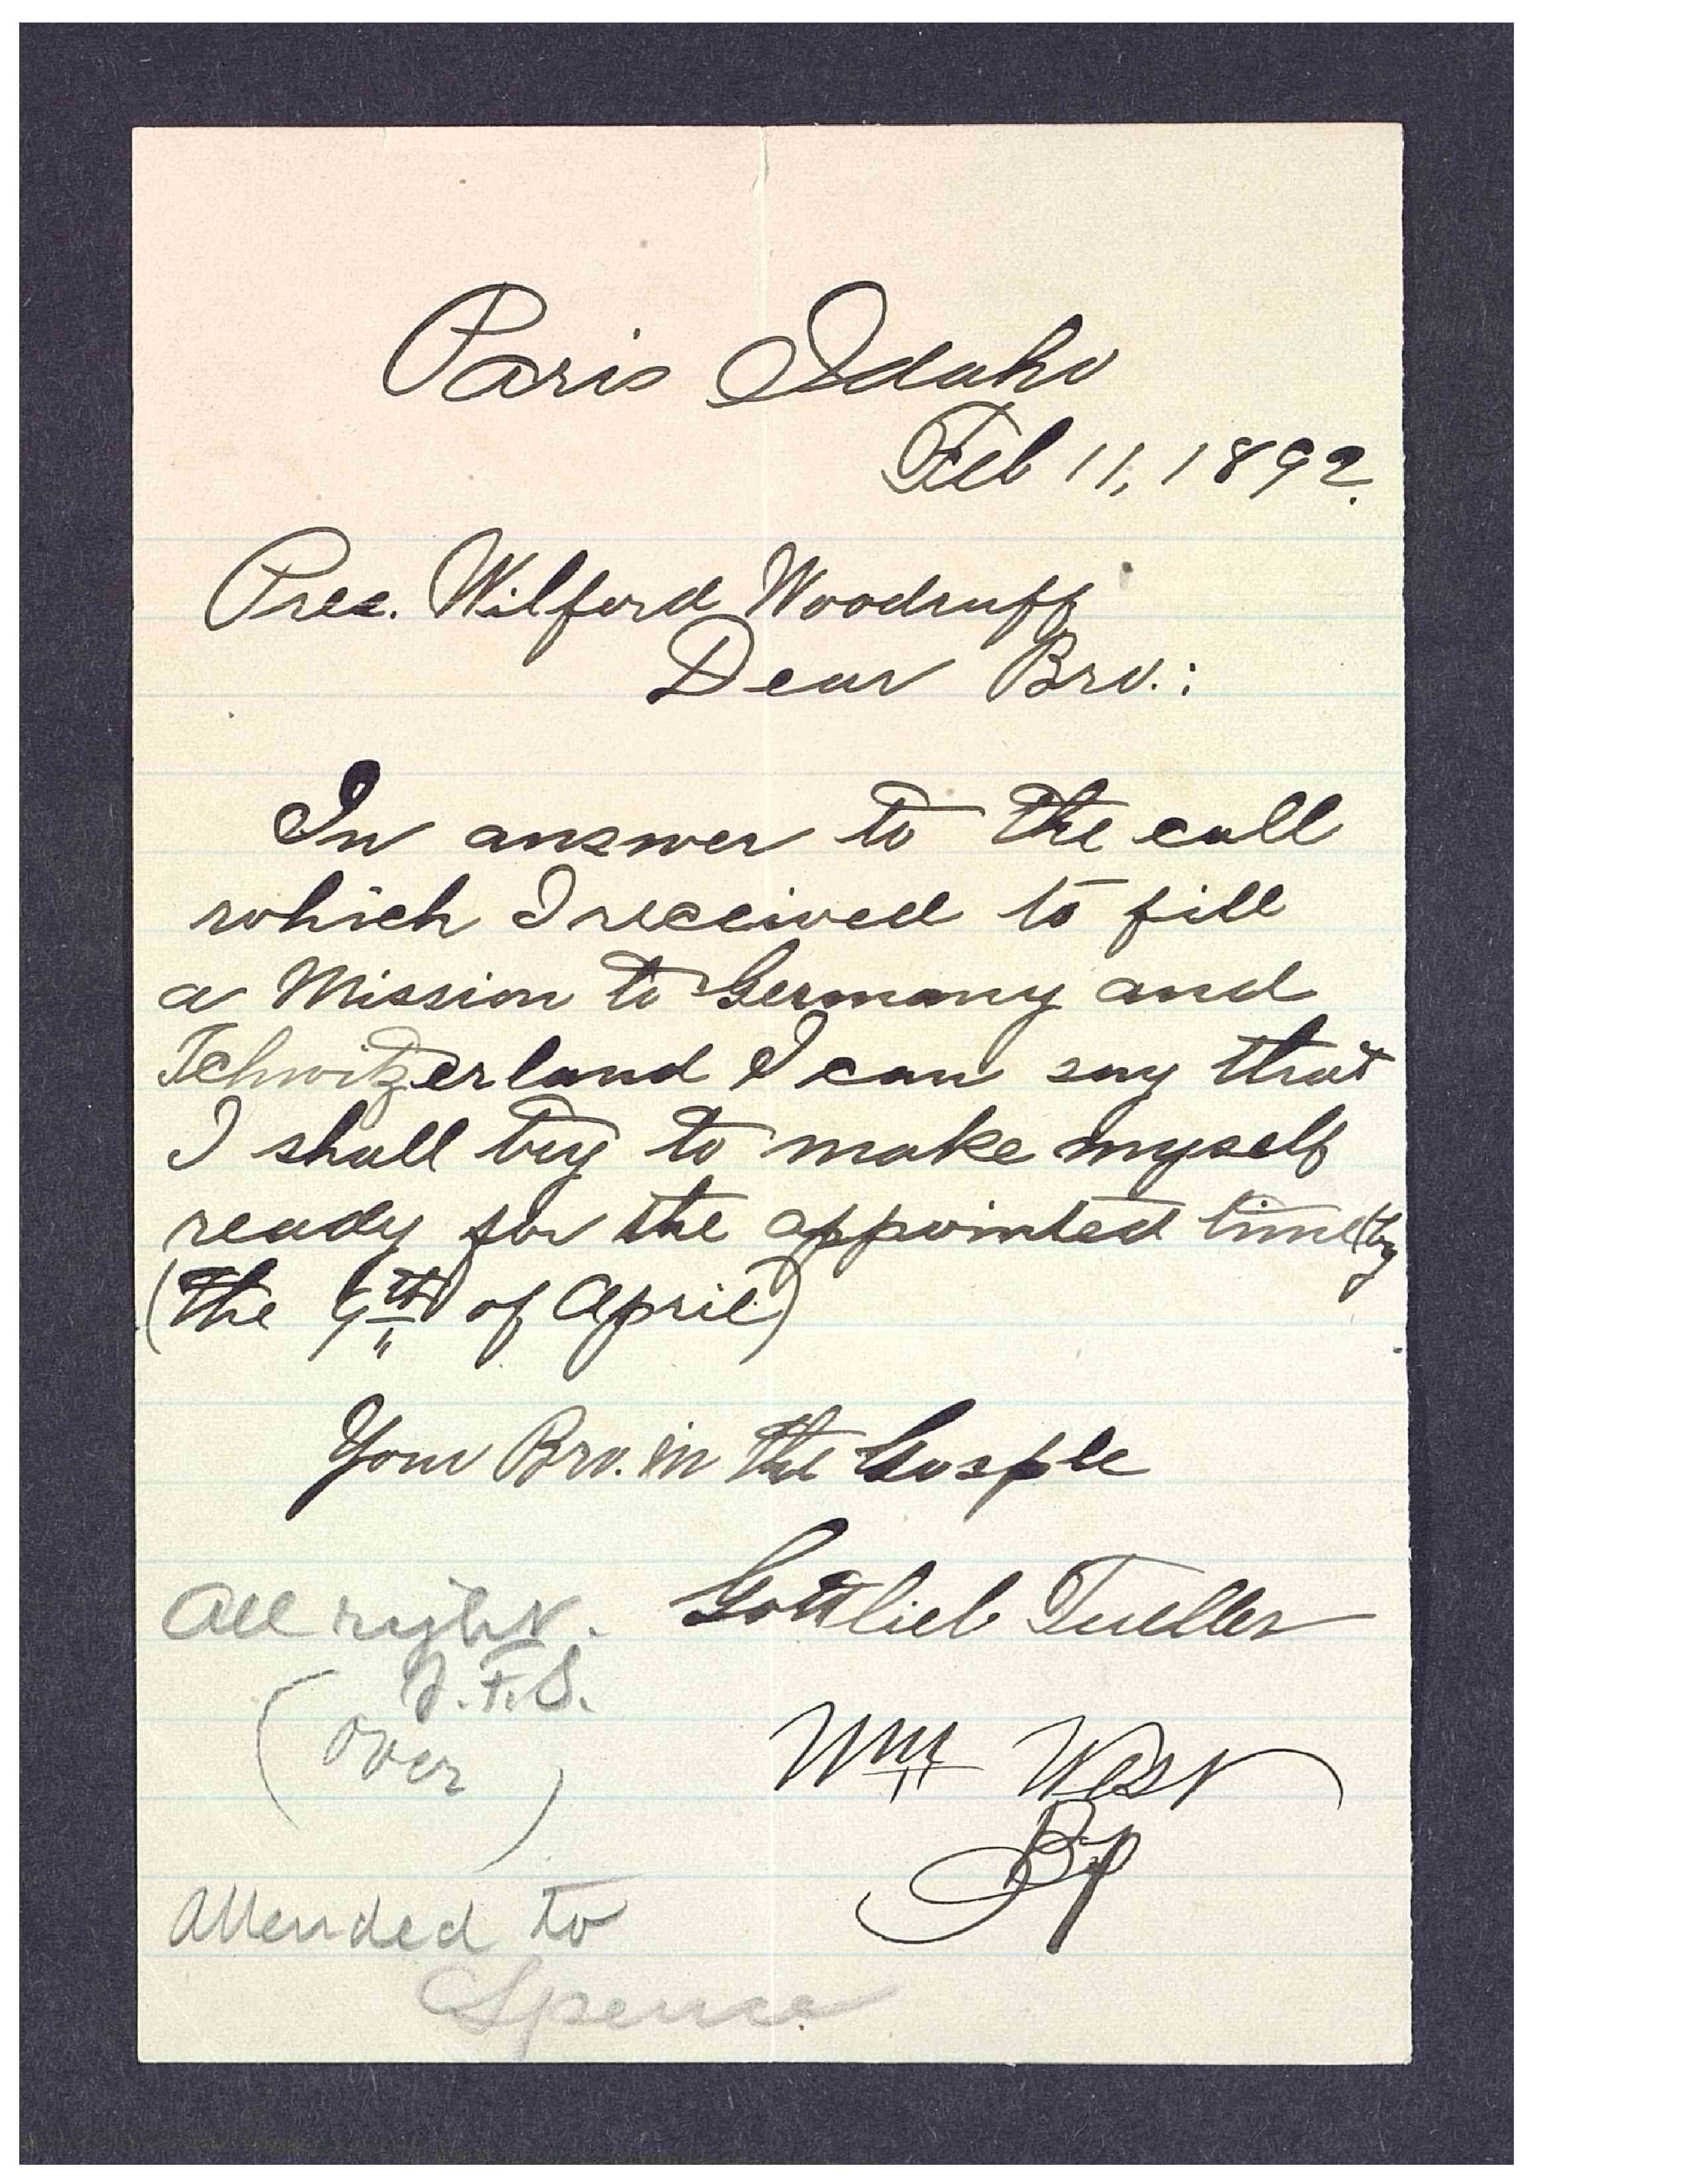 Paris Idaho
Feb 11, 1892.
Pres. Wilford Woodruff
Dear Bro.:
In answer to the call
which I received to fill
a Mission to Germany and
Schwitzerland I can say that
I shall try to make myself
ready for the appointed time (by
(the 9th of April)
Your Bro. in the Gosple
Gottlieb Tueller
All right.
J. F. S.
(over)
Wm West
Bp
Attended to
Spence